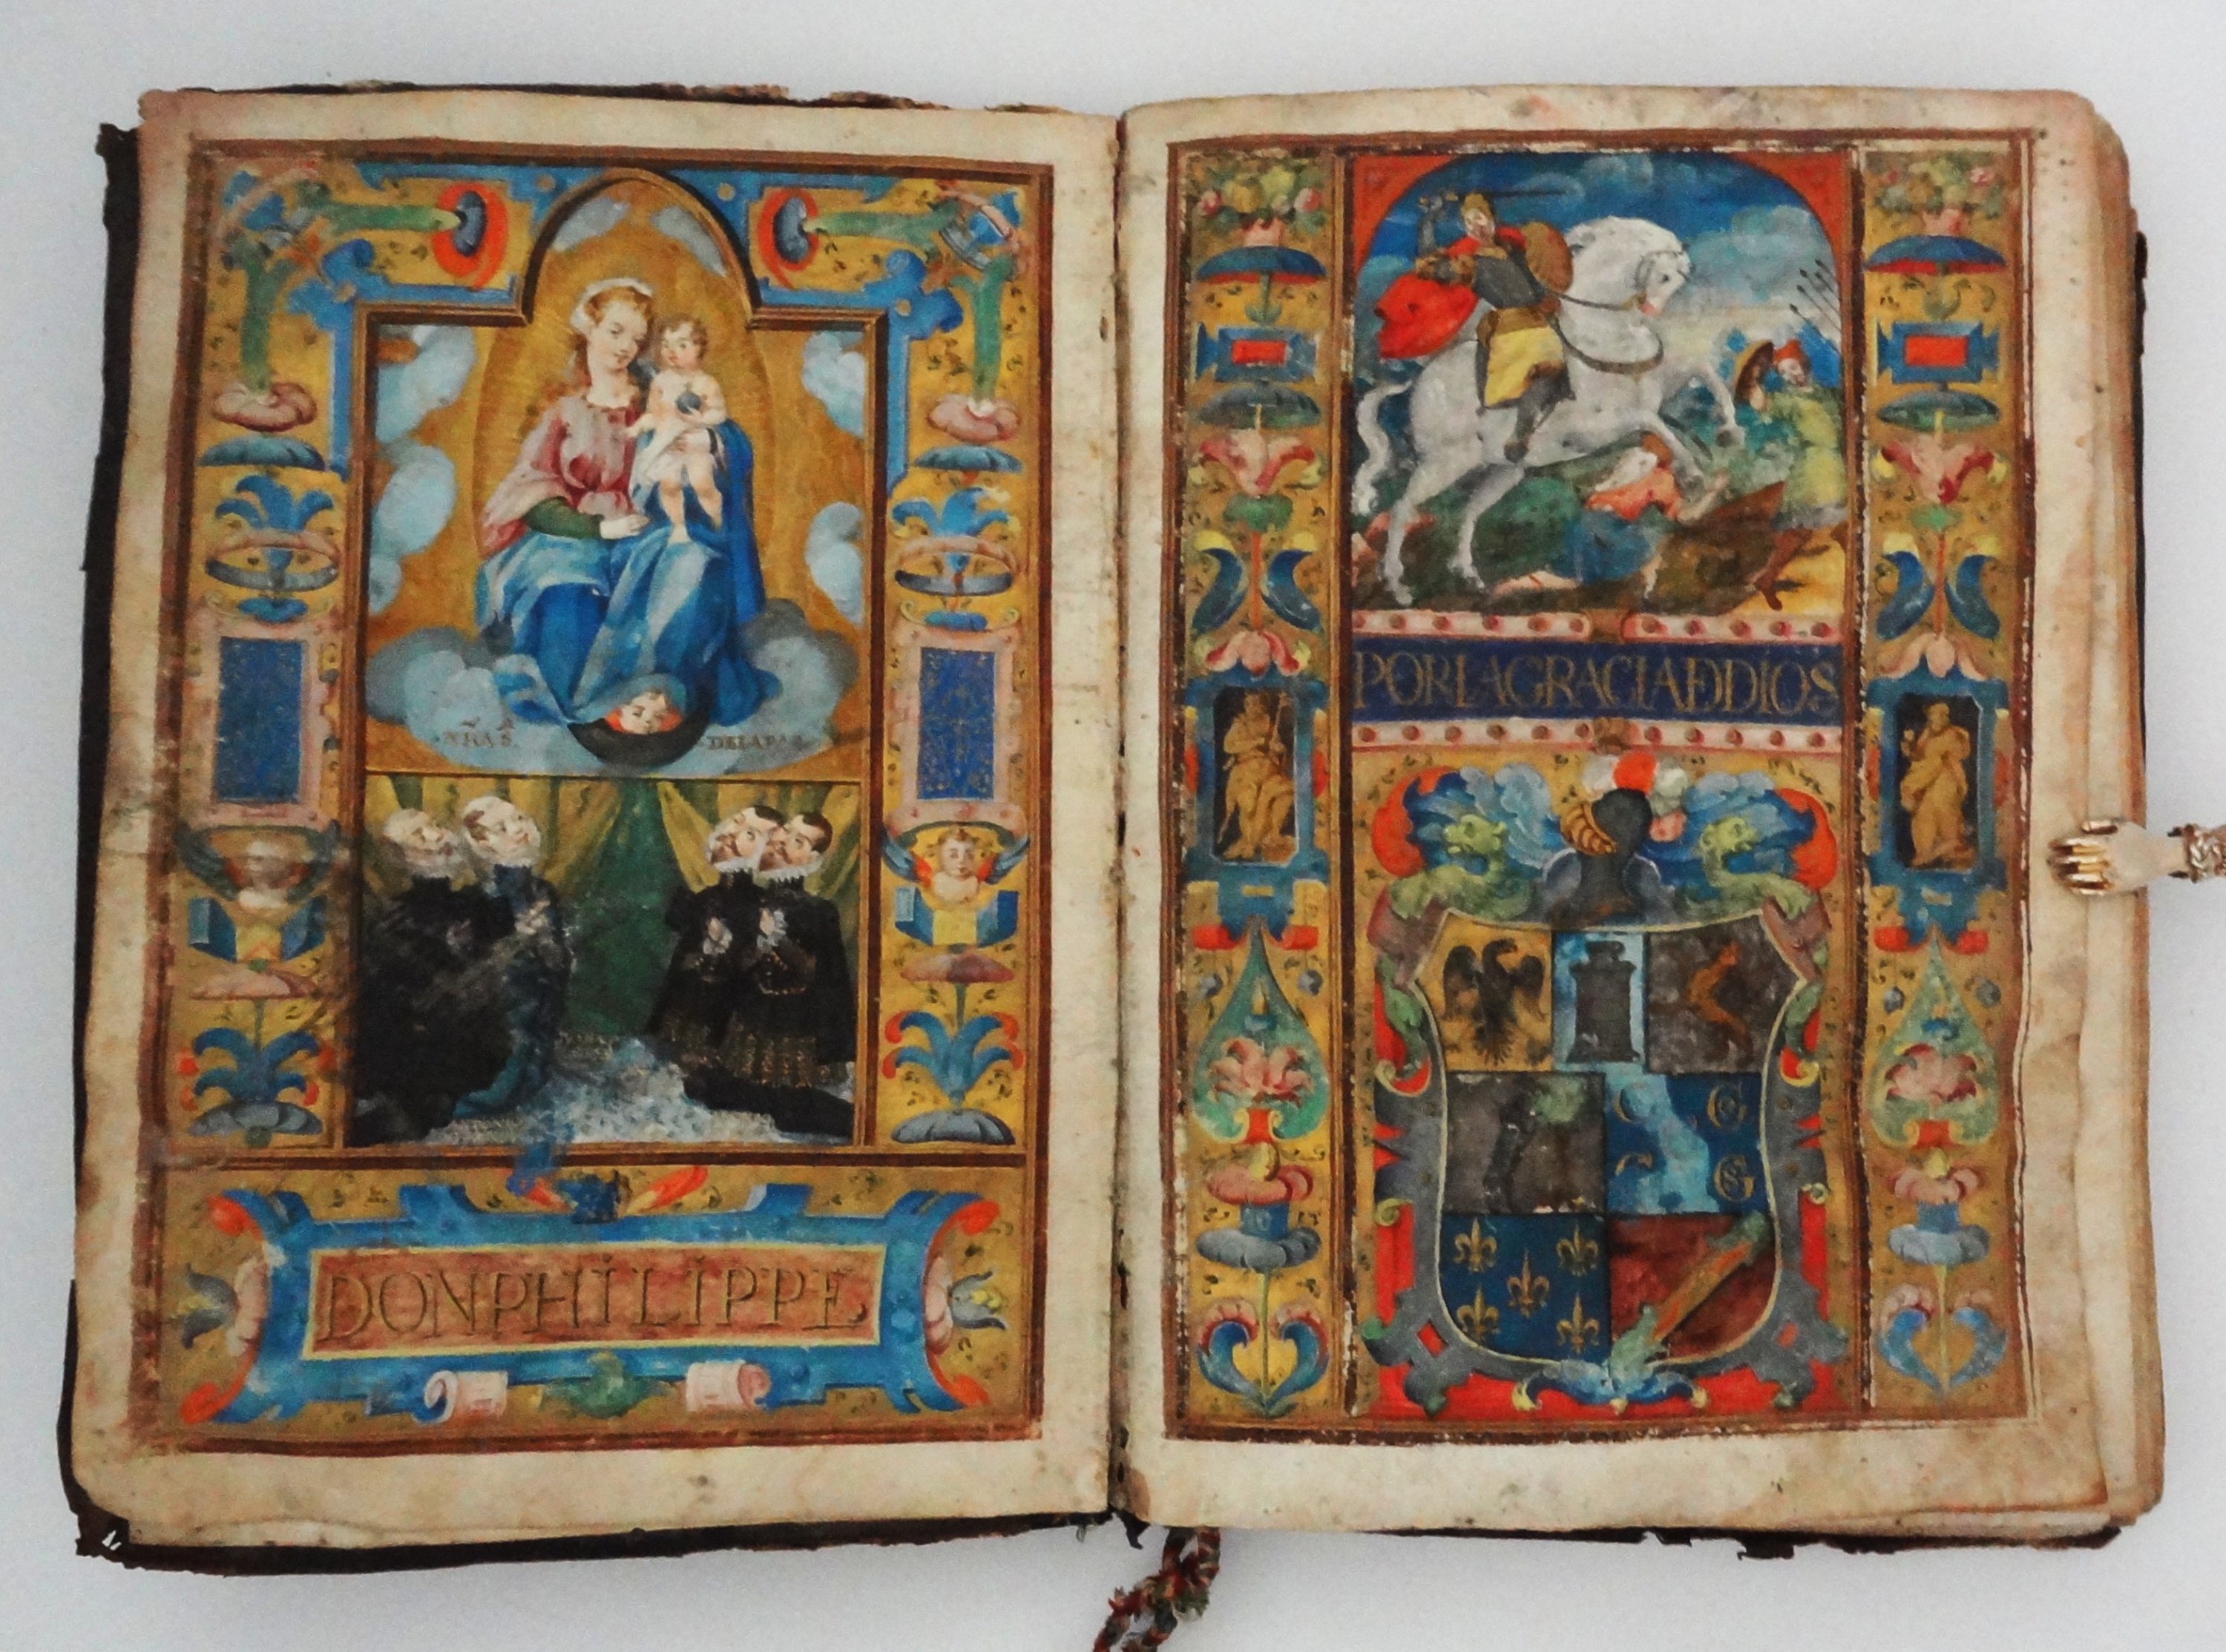 NR̃A S̃ DELAPAZ
DONPHILIPPE
PORLAGRACIADDIOS